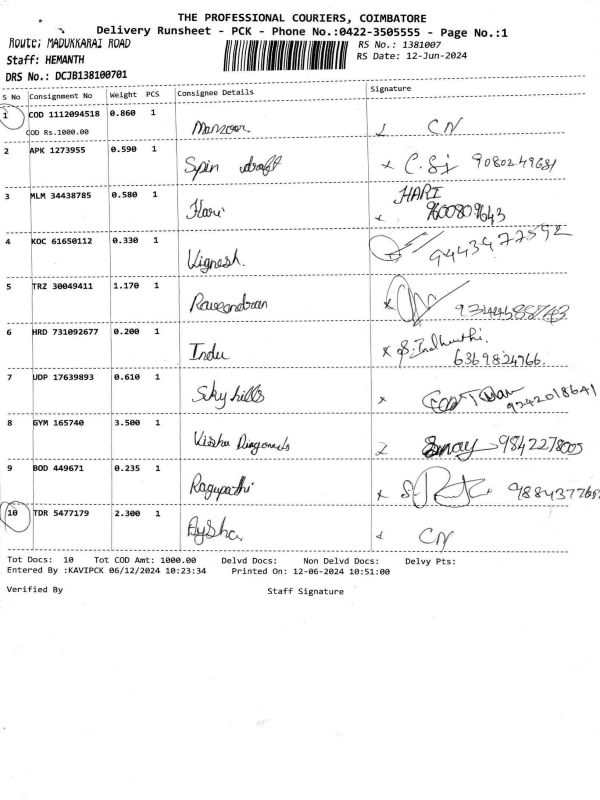 THE PROFESSIONAL COURIERS, COIMBATORE
Delivery Runsheet - PCK - Phone No.:0422-3505555 - Page No.:1
Route: MADUKKARAI ROAD
RS No.: 1381007
Staff: HEMANTH
RS Date: 12-Jun-2024
DRS No.: DCJB138100701
S No Consignment No Weight PCS Consignee Details Signature
1 COD 1112094518 0.860 1 Manzoor CN
COD Rs.1000.00
2 APK 1273955 0.590 1 Spin draft x C. Si 9080249681
3 MLM 34438785 0.580 1 Hari HARI
x 9600809643
4 KOC 61650112 0.330 1 Vignesh. 9443977592
5 TRZ 30049411 1.170 1 Raveendran x
6 HRD 731092677 0.200 1 Indu x S. Indhumathi.
6369824766.
7 UDP 17639893 0.610 1 Sky hills x 9342018641
8 GYM 165740 3.500 1 Visshu Diagonals 9842278005
9 BOD 449671 0.235 1 Ragupathi x
10 TDR 5477179 2.300 1 Aysha. CN
Tot Docs: 10 Tot COD Amt: 1000.00 Delvd Docs: Non Delvd Docs: Delvy Pts:
Entered By :KAVIPCK 06/12/2024 10:23:34 Printed On: 12-06-2024 10:51:00
Verified By Staff Signature